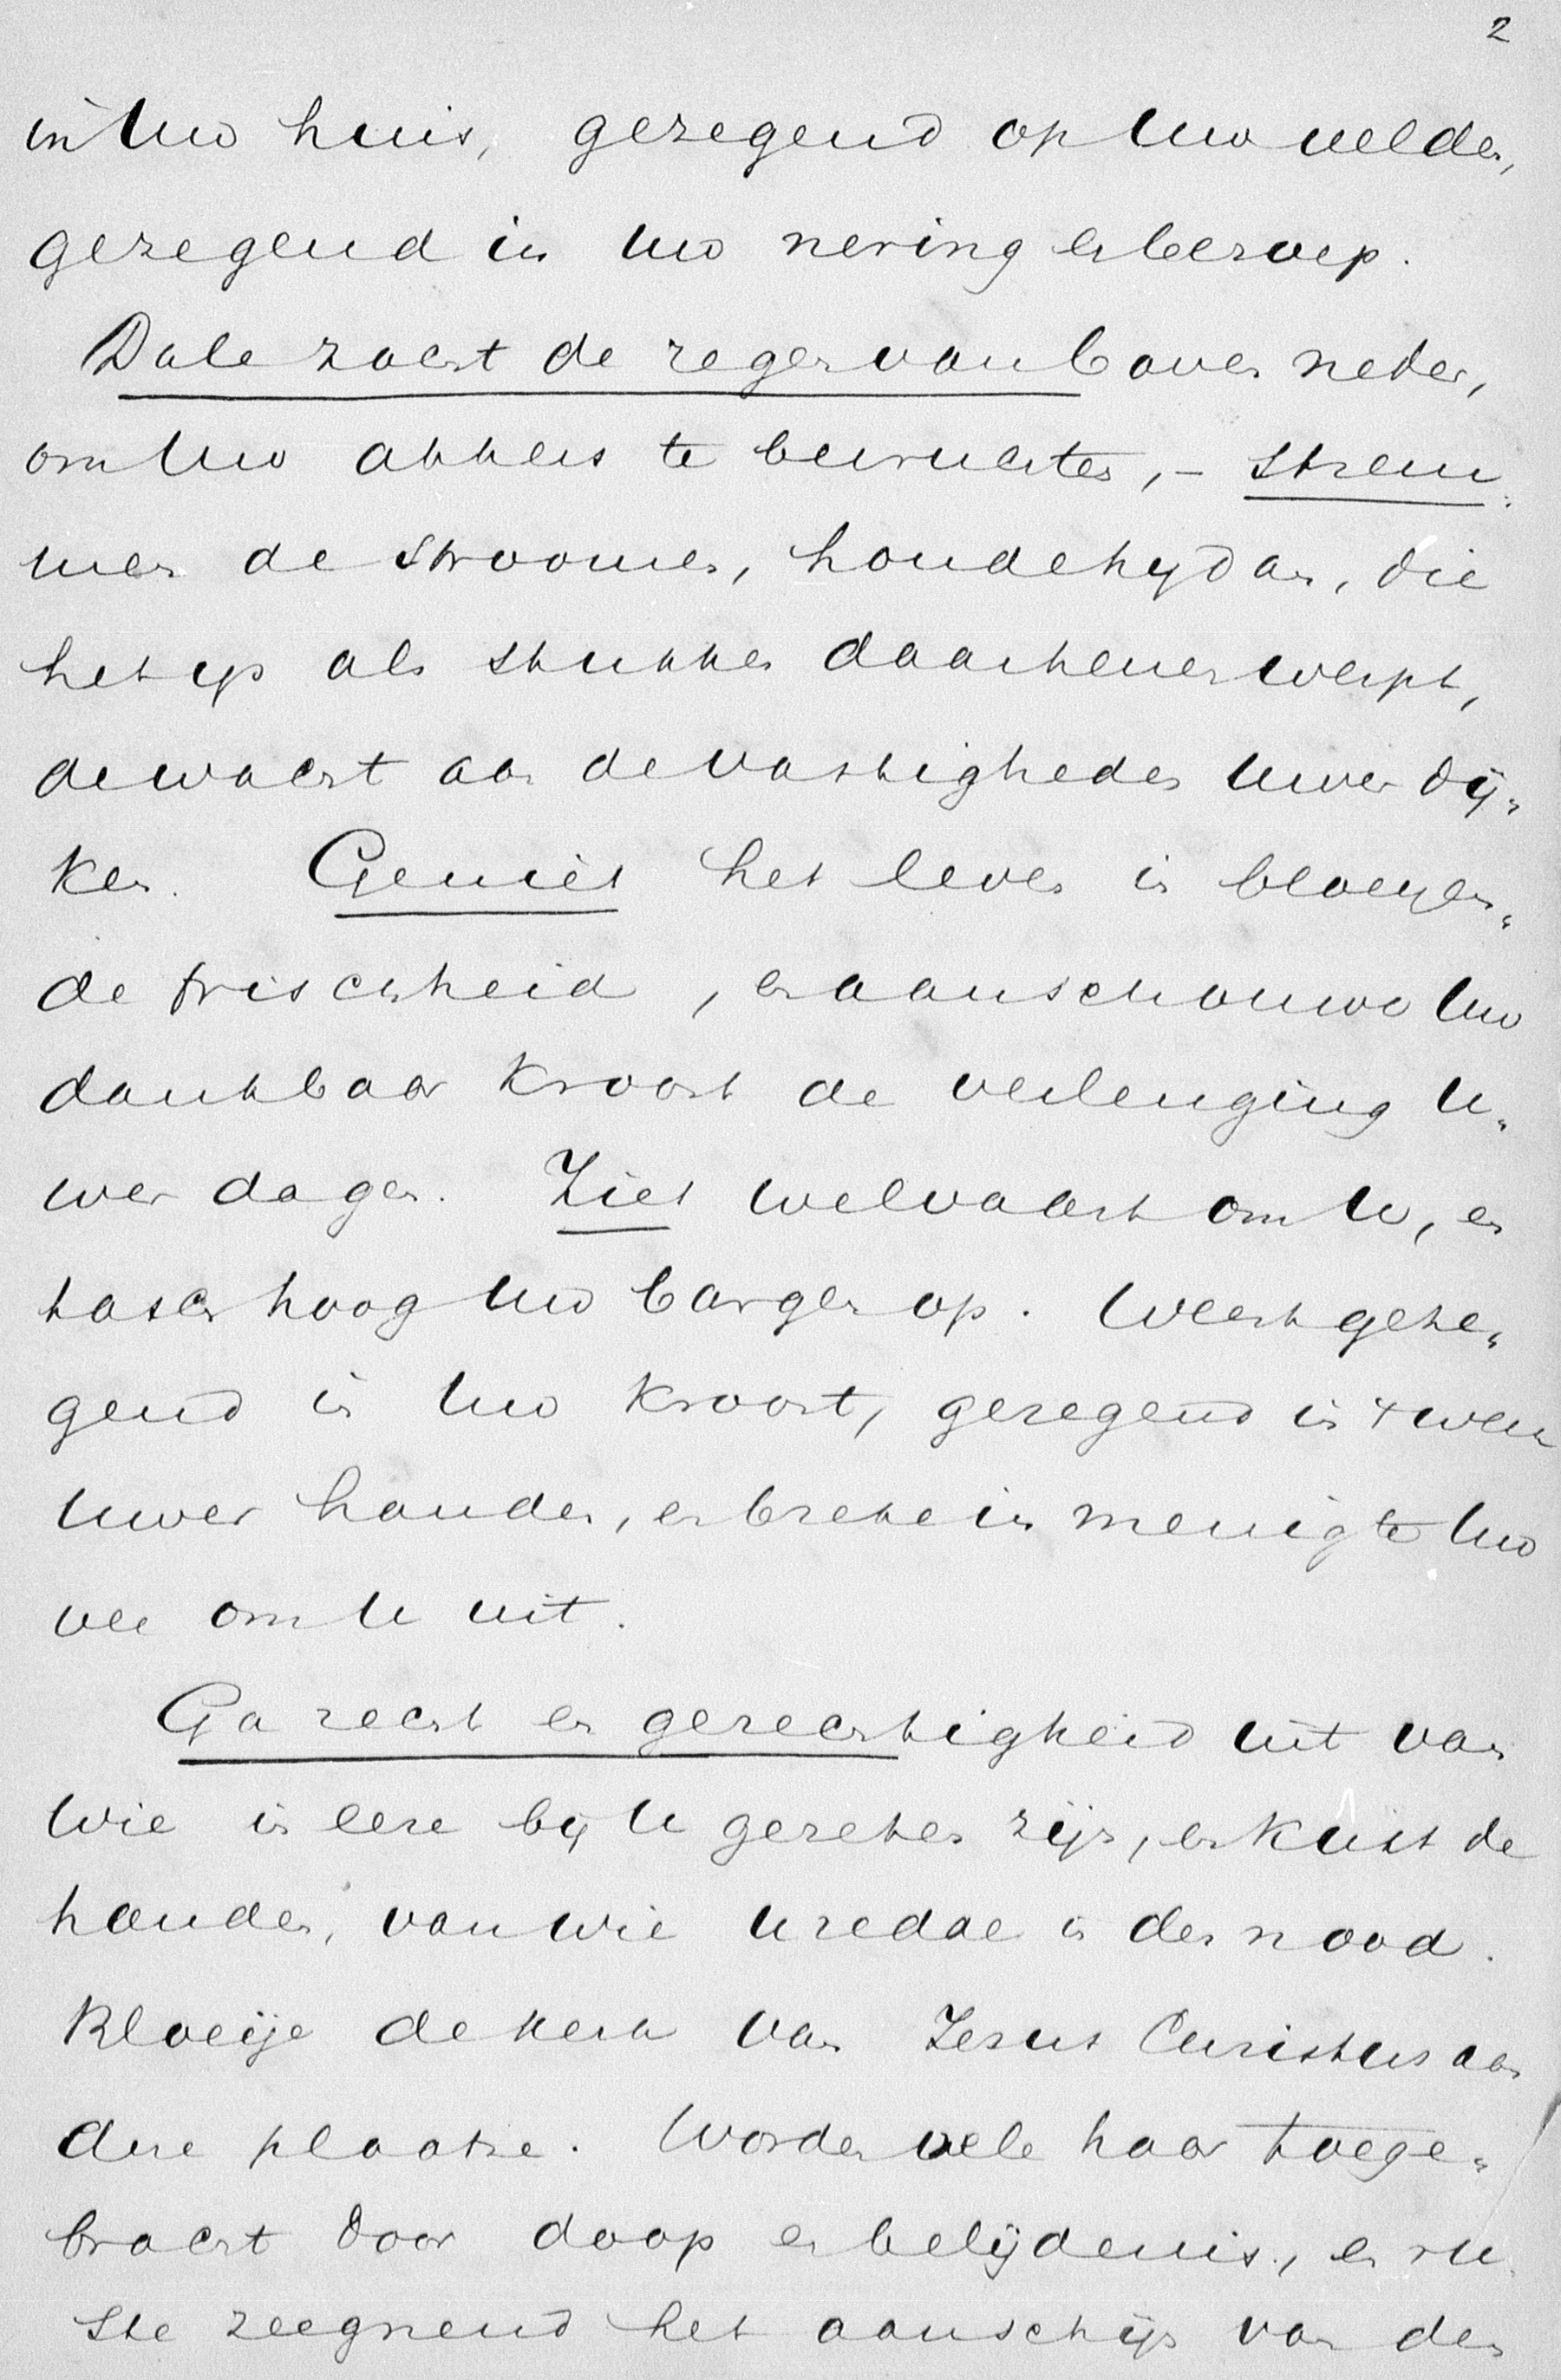 2
in Uw huis, gezegend op Uw velden,
gezegend in Uw nering en beroep.
Dale zacht de regen van boven neder,
om Uw akkers te bevruchten, - strem„
men de stroomen, houde hy dan, die
het ys als stukken daarhenen werpt,
de wacht aan de vastigheden Uwer dij„
ken. Geniet het leven in bloeyen„
de frischheid, en aanschouwe Uw
dankbaar kroost de verlenging U„
wer dagen. Ziet welvaart om U, en
tasch hoog Uw bargen op. Weest geze„
gend in Uw kroost, gezegend in 't werk
Uwer handen, en breke in menigte Uw
vee om U uit.
Ga recht en gerechtigheid uit van
wie in eere bij U gezeten zijn, en kuist de
handen, van wie U redde in den nood.
Bloeije de kerk van Jesus Christus aan
deze plaatse. Worden vele haar toege„
bracht door doop en belijdenis, en ru„
ste zeegnend het aanschijn van den